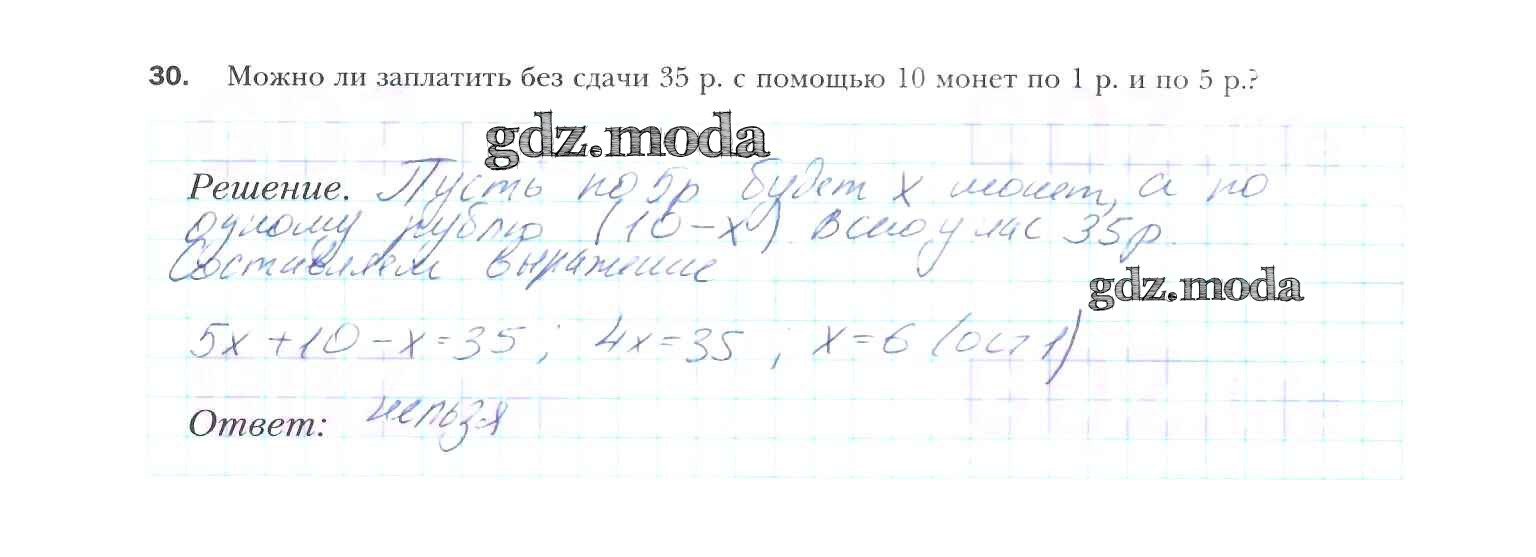 30. Можно ли заплатить без сдачи 35 р. с помощью 10 монет по 1 р. и по 5 р.?
gdz.moda
Решение. Пусть по 5р будет х монет, а по
одному рублю (10-х). Всего у нас 35р.
Составляем выражение
gdz.moda
5х+10-х=35; 4х=35; х=6 (ост 1)
Ответ: нельзя